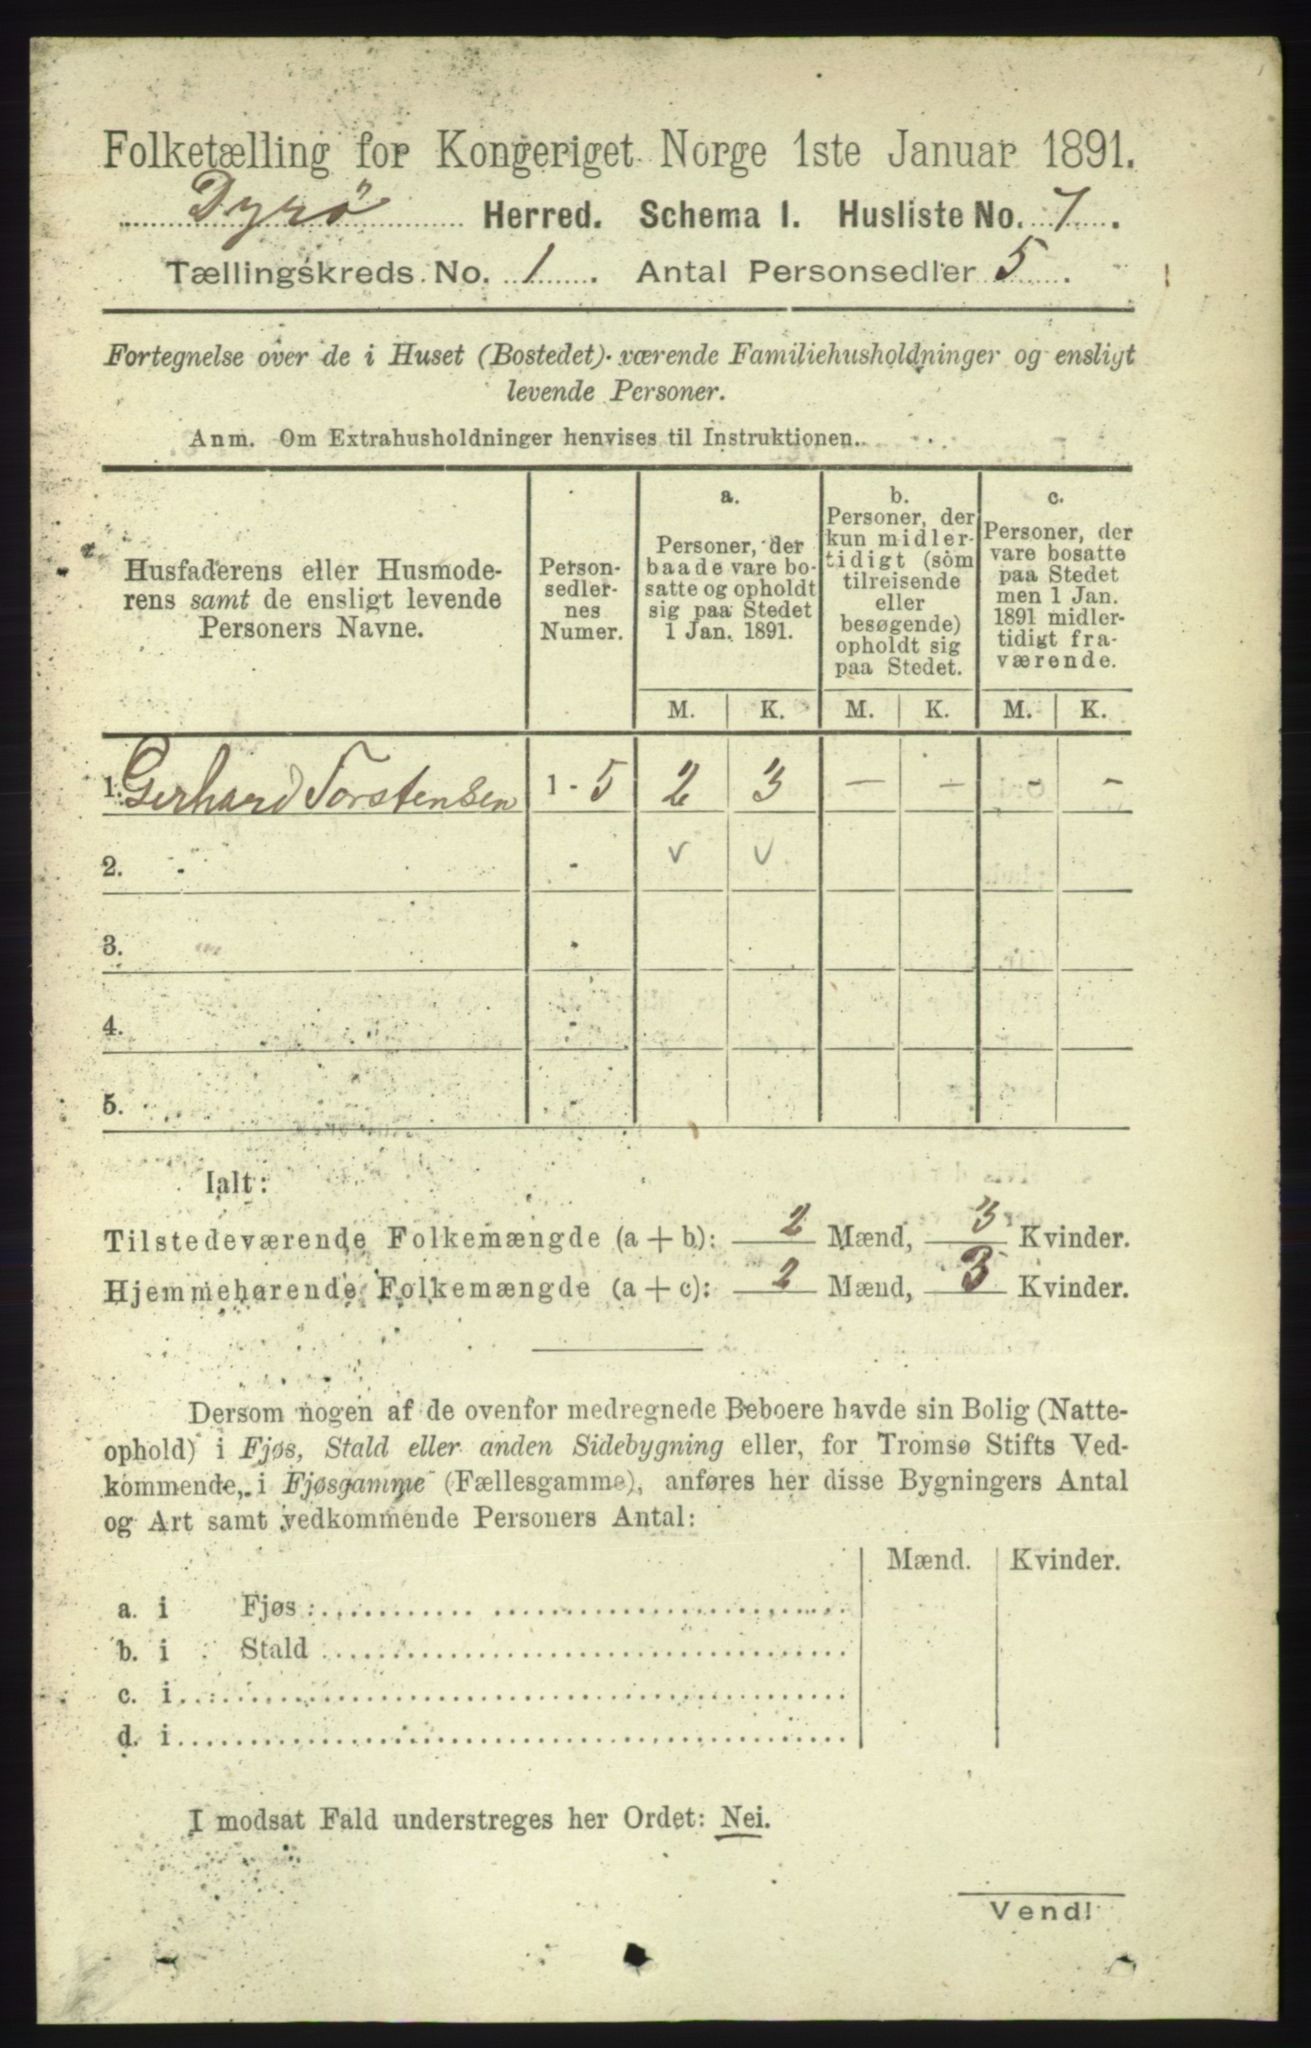 Folketælling for Kongeriget Norge 1ste Januar 1891.
Dyrö Herred. Schema I. Husliste No. 7.
Tællingskreds No. 1. Antal Personsedler 5.
Fortegnelse over de i Huset (Bostedet) værende Familiehusholdninger og ensligt
levende Personer.
Anm. Om Extrahusholdninger henvises til Instruktionen.
Husfaderens eller Husmode-
rens samt de ensligt levende
Personers Navne.
Person-
sedler-
nes
Numer.
a.
Personer, der
baade vare bo-
satte og opholdt
sig paa Stedet
1 Jan. 1891.
b.
Personer, der
kun midler-
tidigt (som
tilreisende
eller
besøgende)
opholdt sig
paa Stedet.
c.
Personer, der
vare bosatte
paa Stedet
men 1 Jan.
1891 midler-
tidigt fra-
værende.
M. K. M. K. M. K.
1. Gerhard Torstensen 1 - 5 2 3 - - - -
2. - v v
3. -
4. -
5.
Ialt:
Tilstedeværende Folkemængde (a + b): 2 Mænd, 3 Kvinder.
Hjemmehørende Folkemængde (a + c): 2 Mænd, 3 Kvinder.
Dersom nogen af de ovenfor medregnede Beboere havde sin Bolig (Natte-
ophold) i Fjøs, Stald eller anden Sidebygning eller, for Tromsø Stifts Ved-
kommende, i Fjøsgamme (Fællesgamme), anføres her disse Bygningers Antal
og Art samt vedkommende Personers Antal:
Mænd. Kvinder.
a. i Fjøs:
b. i Stald
c. i
d. i
I modsat Fald understreges her Ordet: Nei.
Vend!